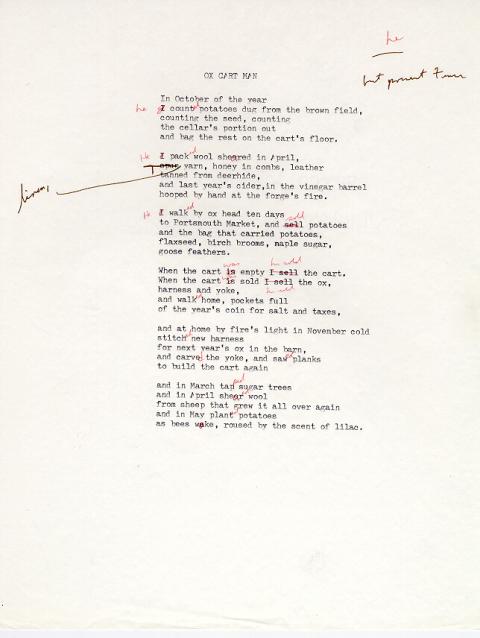 he
but present Tense
OX CART MAN
In October of the year
he I counted potatoes dug from the brown field,
counting the seed, counting
the cellar's portion out
and bag the rest on the cart's floor.
He I packed wool sheared in April,
yarn, honey in combs, leather
linen,
tanned from deerhide,
and last year's cider,in the vinegar barrel
hooped by hand at the forge's fire.
He I walked by ox head ten days sold
to Portsmouth Market, and sell potatoes
and the bag that carried potatoes,
flaxseed, birch brooms, maple sugar,
goose feathers.
was he sold
When the cart is empty I sell the cart.
When the cart is sold I sell the ox,
was he sold
harness and yoke,
and walk home, pockets full
of the year's coin for salt and taxes,
and at home by fire's light in November cold
stitch new harness
for next year's ox in the barn,
and carve the yoke, and saw planks
to build the cart again
and in March tap sugar trees
and in April shear wool
from sheep that grew it all over again
and in May plant potatoes
as bees wake, roused by the scent of lilac.